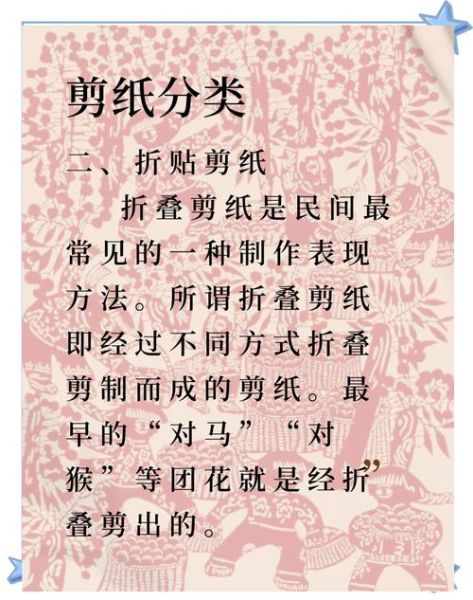 剪纸分类
二、折贴剪纸
折叠剪纸是民间最
常见的一种制作表现
方法。所谓折叠剪纸
即经过不同方式折叠
剪制而成的剪纸。最
早的“对马”“对
猴”等团花就是经折
叠剪出的。
”